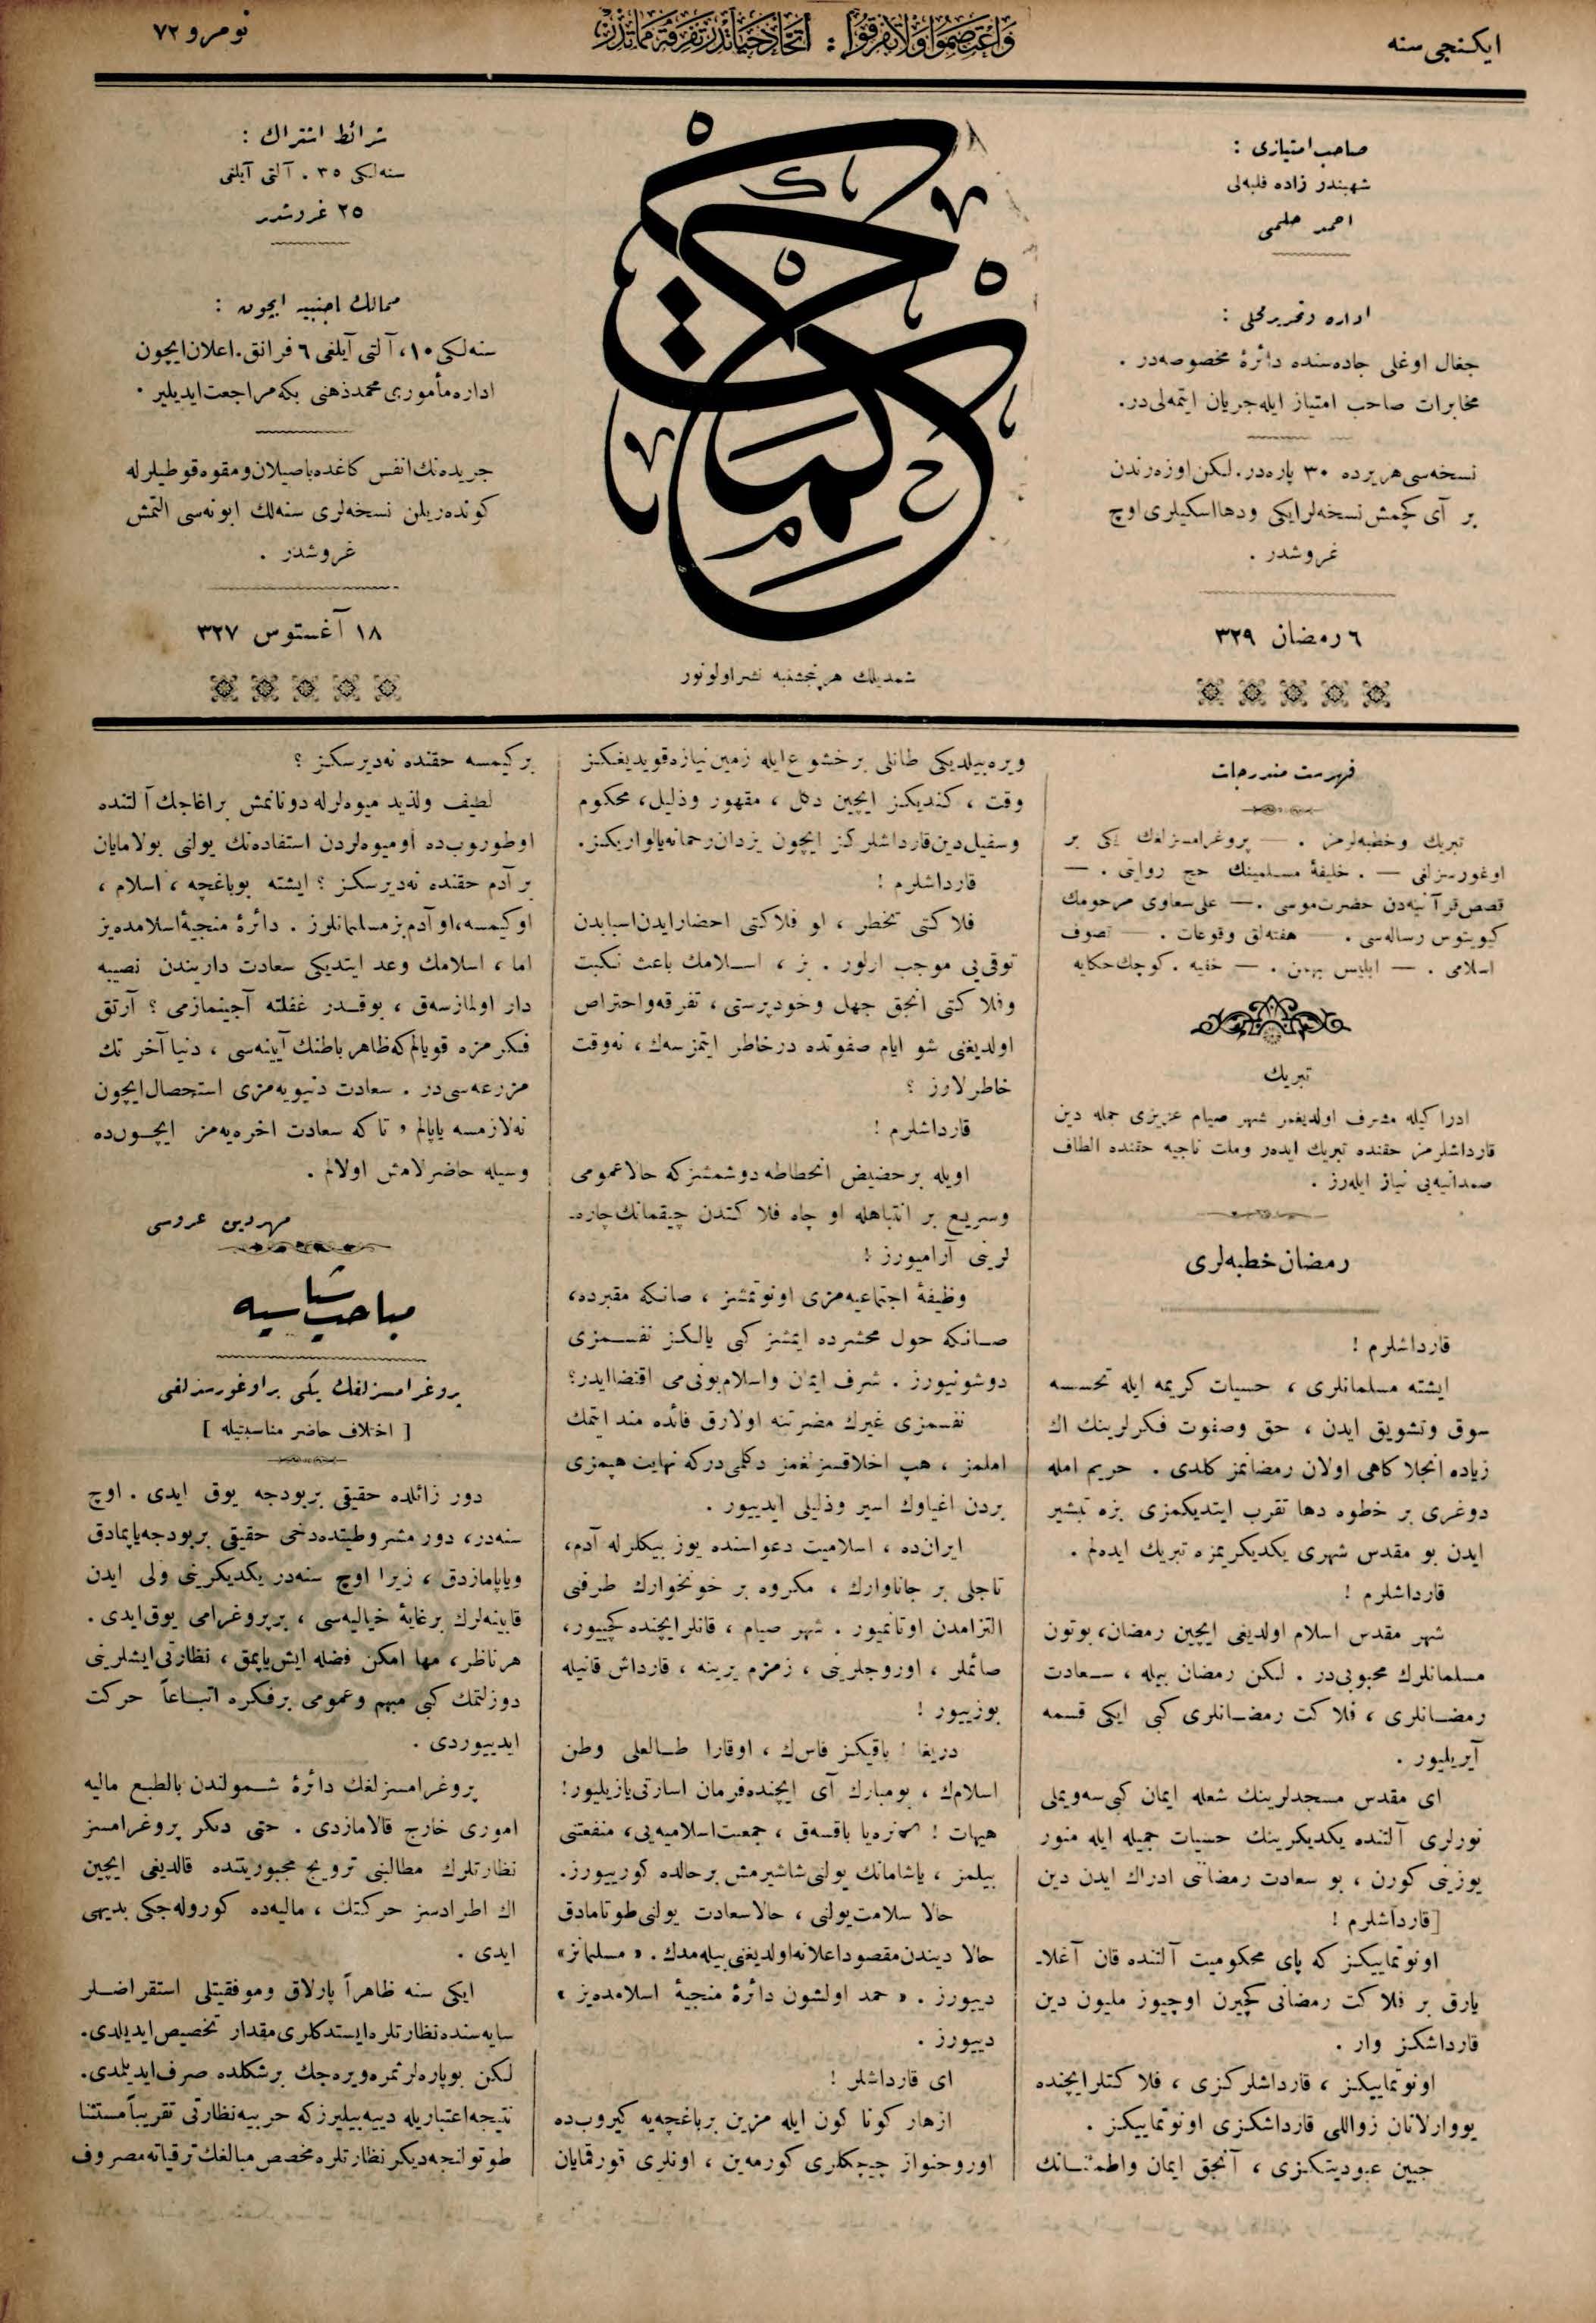 ایكنجی سنه
وَاعْتَصِمُوا وَلَا تَفَرَّقُوا : اتحاد حیاتدر تفرقه مماتدر
نومرو ٧٢
صاحب امتیازی :
شهبندر زاده فلبه‌لی
احمد حلمی
اداره و تحریر محلی :
جغال اوغلی جاده‌سنده دائرهٔ مخصوصه‌در .
مخابرات صاحب امتیاز ایله جریان ایتمه‌لی‌در .
نسخه‌سی هر یرده ٣٠ پاره‌در . لكن اوزه‌رندن
بر آی كچمش نسخه‌لر ایكی و دها اسكیلری اوچ
غروشدر .
٦ رمضان ٣٢٩
حكمت
شمدیلك هر پنجشنبه نشر اولونور
شرائط اشتراك :
سنه‌لكی ٣٥ . آلتی آیلغی
٢٥ غروشدر
ممالك اجنبیه ایچون :
سنه‌لكی ١٠، آلتی آیلغی ٦ فرانق . اعلان ایچون
اداره مأموری محمد ذهنی بكه مراجعت ایدیلیر .
جریده‌نك انفس كاغده باصیلان و مقوه قوطیلرله
كونده‌ریلن نسخه‌لری سنه‌لك ابونه‌سی التمش
غروشدر .
١٨ آغستوس ٣٢٧
فهرست مندرجات
تبریك وخطبه‌لرمز . — پروغرامسزلغك یكی بر
اوغورسزلغی — . خلیفهٔ مسلمینك حج روایتی . —
قصص قرآنیه‌دن حضرت موسی . — علی سعاوی مرحومك
كیوینوس رساله‌سی . — هفته‌لق وقوعات . — تصوف
اسلامی . — ابلیس بهمن . — خفیه . كوچك حكایه
تبریك
ادراكیله مشرف اولدیغمز شهر صیام عزیزی جمله دین
قارداشلرمز حقنده تبریك ایده‌ر وملت ناجیه حقنده الطاف
صمدانیه‌یی نیاز ایله‌رز .
رمضان خطبه‌لری
قارداشلرم !
ایشته مسلمانلری ، حسیات كریمه ایله تحسسه
سوق وتشویق ایدن ، حق وصفوت فكرلرینك اك
زیاده انجلاكاهی اولان رمضانمز كلدی . حریم امله
دوغری بر خطوه دها تقرب ایتدیكمزی بزه تبشیر
ایدن بو مقدس شهری یكدیكریمزه تبریك ایده‌لم .
قارداشلرم !
شهر مقدس اسلام اولدیغی ایچین رمضان، بوتون
مسلمانلرك محبوبی‌در . لكن رمضان بیله ، سعادت
رمضانلری ، فلاكت رمضانلری كبی ایكی قسمه
آیریلیور .
ای مقدس مسجدلرینك شعله ایمان كبی سه‌ویملی
نورلری آلتنده یكدیكرینك حسیات جمیله ایله منور
یوزینی كورن ، بو سعادت رمضانی ادراك ایدن دین
[قارداشلرم !
اونوتماییكز كه پای محكومیت آلتنده قان آغلا-
یارق بر فلاكت رمضانی كچیرن اوچیوز ملیون دین
قارداشكز وار .
اونوتماییكز ، قارداشلركزی ، فلاكتلر ایچنده
یووارلانان زواللی قارداشكزی اونوتماییكز .
جبین عبودیتكزی ، آنجق ایمان واطمئنانك
ویره‌بیلدیكی طاتلی بر خشوع ایله زمین نیازه قویدیغكز
وقت ، كندیكز ایچین دكل ، مقهور وذلیل ، محكوم
وسفیل دین قارداشلركز ایچون یزدان رحمانه یالواریكز .
قارداشلرم !
فلاكتی تخطر ، او فلاكتی احضار ایدن اسبابدن
توقی‌یی موجب اولور . بز ، اسلامك باعث نكبت
وفلاكتی انجق جهل وخودپرستی ، تفرقه واحتراص
اولدیغنی شو ایام صفوتده درخاطر ایتمزسه‌ك ، نه‌وقت
خاطرلارز ؟
قارداشلرم !
اویله بر حضیض انحطاطه دوشمشزكه حالا عمومی
وسریع بر انتباهله او چاه فلاكتدن چیقمانك چاره-
لرینی آرامیورز !
وظیفهٔ اجتماعیه‌مزی اونوتمشز ، صانكه مقبرده،
صانكه حول محشرده ایمشز كبی یالكز نفسمزی
دوشونیورز . شرف ایمان واسلام بونی‌می اقتضا ایدر؟
نفسمزی غیرك مضرتنه اولارق فائده مند ایتمك
املمز ، هپ اخلاقسزلغمز دكلمی‌دركه نهایت هپمزی
بردن اغیارك اسیر وذلیلی ایدییور .
ایران‌ده ، اسلامیت دعواسنده یوز بیكلرله آدم،
تاجلی بر جاناوارك ، مكروه بر خونخوارك طرفنی
التزامدن اوتانمیور . شهر صیام ، قانلر ایچنده كچییور،
صائملر ، اوروجلرینی ، زمزم یرینه ، قارداش قانیله
بوزییور !
دریغا ! باقیكز فاس‌ك ، او قارا طالعلی وطن
اسلامك ، بو مبارك آی ایچنده فرمان اسارتی یازیلیور!
هیهات ! نره‌یا باقسه‌ق ، جمعیت اسلامیه‌یی، منفعتنی
بیلمز ، یاشامانك یولنی شاشیرمش بر حالده كورییورز.
حالا سلامت یولنی ، حالا سعادت یولنی طوتامادق
حالا دیندن مقصود اعلا نه اولدیغنی بیله‌مدك . « مسلمانز»
دییورز . « حمد اولسون دائرهٔ منجیهٔ اسلامده‌یز »
دییورز .
ای قارداشلر !
ازهار كوناكون ایله مزین بر باغچه‌یه كیروب‌ده
او روحنواز چیچكلری كورمه‌ین ، اونلری قورقمایان
بر كیمسه حقنده نه‌دیرسكز ؟
لطیف ولذید میوه‌لرله دونانمش بر اغاجك آلتنده
اوطوروب‌ده او میوه‌لردن استفاده‌نك یولنی بولامایان
بر آدم حقنده نه‌دیرسكز ؟ ایشته بو باغچه ، اسلام ،
او كیمسه، او آدم بز مسلمانلرز . دائرهٔ منجیهٔ اسلامده‌یز
اما ، اسلامك وعد ایتدیكی سعادت داریندن نصیبه
دار اولمازسه‌ق ، بوقدر غفلته آجینمازمی ؟ آرتق
فكرمزه قویالم كه ظاهر باطنك آیینه‌سی ، دنیا آخرتك
مزرعه‌سی‌در . سعادت دنیویه‌مزی استحصال ایچون
نه‌لازمسه یاپالم ، تاكه سعادت اخرویه‌مز ایچون‌ده
وسیله حاضرلامش اولالم .
مهردین عروسی
مباحث سیاسیه
پروغرامسزلغك یكی بر اوغورسزلغی
[ اختلاف حاضر مناسبتیله ]
دور زائلده حقیقی بر بودجه یوق ایدی . اوچ
سنه‌در، دور مشروطیتده‌دخی حقیقی بر بودجه یاپمادق
ویاپامازدق ، زیرا اوچ سنه‌در یكدیكرینی ولی ایدن
قابینه‌لرك بر غایهٔ خیالیه‌سی ، بر پروغرامی یوق ایدی .
هر ناظر ، مهما امكن فضله ایش یاپمق ، نظارتی ایشلرینی
دوزلتمك كبی مبهم وعمومی بر فكره اتباعاً حركت
ایدییوردی .
پروغرامسزلغك دائرهٔ شمولندن بالطبع مالیه
اموری خارج قالامازدی . حتی دیكر پروغرامسز
نظارتلرك مطالبنی ترویج مجبوریتنده قالدیغی ایچین
اك اطرادسز حركتك ، مالیه‌ده كوروله‌جكی بدیهی
ایدی .
ایكی سنه ظاهراً پارلاق وموفقیتلی استقراضلر
سایه‌سنده نظارتلره ایستدكلری مقدار تخصیص ایدیلدی.
لكن بو پاره‌لر ثمره ویره‌جك بر شكلده صرف ایدیلمدی.
نتیجه اعتباریله دییه بیلیرزكه حربیه نظارتی تقریباً مستثنا
طوتولنجه دیكر نظارتلره مخصص مبالغك ترقیاته مصروف